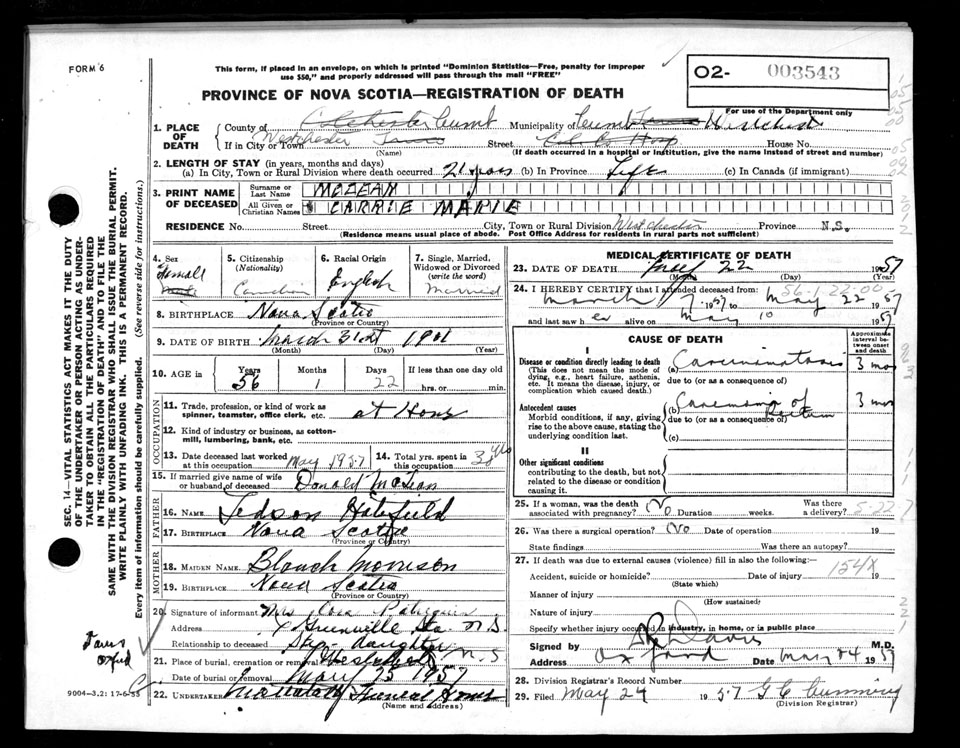 FORM 6
This form, if placed in an envelope, on which is printed "Dominion Statistics—Free, penalty for improper
use $50," and properly addressed will pass through the mail "FREE"
O2- 003543
PROVINCE OF NOVA SCOTIA—REGISTRATION OF DEATH
For use of the Department only
1. PLACE OF DEATH
County of Colchester Cumb Municipality of Cumb
If in City or Town Westchester Street House No.
(Name) (If death occurred in a hospital or institution, give the name instead of street and number)
2. LENGTH OF STAY (in years, months and days)
(a) In City, Town or Rural Division where death occurred 21 years (b) In Province Life (c) In Canada (if immigrant)
3. PRINT NAME OF DECEASED
Surname or Last Name MCLEAN
All Given or Christian Names CARRIE MARIE
RESIDENCE No. Street City, Town or Rural Division Westchester Province N.S.
(Residence means usual place of abode. Post Office Address for residents in rural parts not sufficient)
4. Sex Female
5. Citizenship (Nationality) Canadian
6. Racial Origin English
7. Single, Married, Widowed or Divorced (write the word) Married
8. BIRTHPLACE Nova Scotia
(Province or Country)
9. DATE OF BIRTH March 31st 1901
(Month) (Day) (Year)
10. AGE in Years 56 Months 1 Days 22 If less than one day old hrs. or min.
OCCUPATION
11. Trade, profession, or kind of work as spinner, teamster, office clerk, etc. at Home
12. Kind of industry or business, as cotton-mill, lumbering, bank, etc.
13. Date deceased last worked at this occupation May 1957
14. Total yrs. spent in this occupation 30 yrs
15. If married give name of wife or husband of deceased Donald McLean
FATHER
16. NAME Hatfield
17. BIRTHPLACE Nova Scotia
(Province or Country)
MOTHER
18. MAIDEN NAME Blanch Morrison
19. BIRTHPLACE Nova Scotia
(Province or Country)
20. Signature of informant Mrs
Address Greenville Sta. N.S.
Relationship to deceased Step daughter
21. Place of burial, cremation or removal Westchester N.S
Date of burial or removal May 25 1957
22. UNDERTAKER Funeral Home
(Name and address)
MEDICAL CERTIFICATE OF DEATH
23. DATE OF DEATH May 22 1957
(Month) (Day) (Year)
24. I HEREBY CERTIFY that I attended deceased from:
March 7 1957 to May 22 1957
and last saw her alive on May 10 1957
CAUSE OF DEATH
Approximate interval between onset and death
I
Disease or condition directly leading to death
(This does not mean the mode of dying, e.g., heart failure, asthenia, etc. It means the disease, injury, or complication which caused death.)
(a) Carcinomatosis 3 mos
due to (or as a consequence of)
Antecedent causes
Morbid conditions, if any, giving rise to the above cause, stating the underlying condition last.
(b) Carcinoma of Rectum 3 mos
due to (or as a consequence of)
(c)
II
Other significant conditions
contributing to the death, but not related to the disease or condition causing it.
25. If a woman, was the death associated with pregnancy? No Duration weeks. Was there a delivery?
26. Was there a surgical operation? No Date of operation 19
State findings Was there an autopsy?
27. If death was due to external causes (violence) fill in also the following:—
154X
Accident, suicide or homicide? Date of injury 19
(State which)
Manner of injury
(How sustained)
Nature of injury
Specify whether injury occurred in industry, in home, or in public place
Signed by Davis M.D.
Address Oxford Date May 24 1957
28. Division Registrar's Record Number
29. Filed May 24 1957 G C Cumming
(Division Registrar)
SEC. 14—VITAL STATISTICS ACT MAKES IT THE DUTY
OF THE UNDERTAKER OR PERSON ACTING AS UNDERTAKER
TO OBTAIN ALL THE PARTICULARS REQUIRED
IN THE "REGISTRATION OF DEATH" AND TO FILE THE
SAME WITH THE DIVISION REGISTRAR WHO SHALL ISSUE THE BURIAL PERMIT.
WRITE PLAINLY WITH UNFADING INK. THIS IS A PERMANENT RECORD.
Every item of information should be carefully supplied. (See reverse side for instructions.)
Davis
Oxford
9004-3.2: 17-6-55